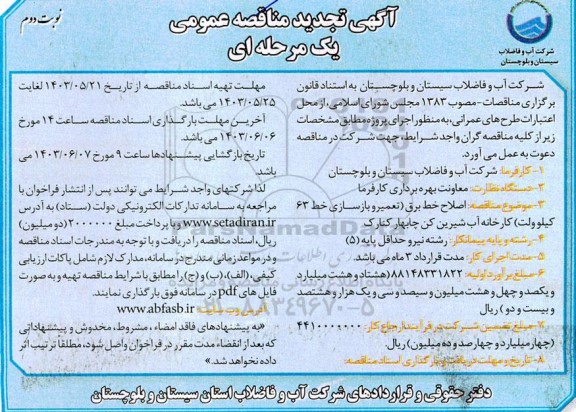 آگهی تجدید مناقصه عمومی
یک مرحله ای
نوبت دوم
شرکت آب و فاضلاب
سیستان و بلوچستان
شرکت آب و فاضلاب سیستان و بلوچسـتان به استناد قانون
برگزاری مناقصات-مصوب ۱۳۸۳ مجلس شورای اسلامی، از محل
اعتبارات طرح‌های عمرانی، به منظور اجرای پروژه مطابق مشخصات
زیر از کلیه مناقصه گران واجد شرایط، جهت شرکت در مناقصه
دعوت به عمل می آورد.
۱-کارفرما: شرکت آب و فاضلاب سیستان و بلوچستان
۲-دستگاه نظارت: معاونت بهره برداری کارفرما
۳-موضوع مناقصه: اصلاح خط برق (تعمیر و بازسازی خط ۶۳
کیلو ولت) کارخانه آب شیرین کن چابهار کنارک
۴-رشته و پایه پیمانکار: رشته نیرو حداقل پایه (۵)
۵-مدت اجرای کار: مدت قرارداد ۳ ماه می باشد.
۶-مبلغ برآورد اولیه: ۸۸۱۴۸۳۳۱۸۲۲(هشتاد و هشت میلیارد
و یکصد و چهل و هشت میلیون و سیصد و سی و یک هزار و هشتصد
و بیست و دو) ریال
۷-مبلغ تضمین شـرکت در فرآیند ارجاع کار: ۴۴۱۰۰۰۰۰۰۰
(چهار میلیارد و چهارصد و ده میلیون) ریال
۸-تاریخ و مهلت دریافت و بارگذاری اسناد مناقصه:
مهلـت تهیه اسـناد مناقصـه از تاریخ ۱۴۰۳/۰۵/۲۱ لغایت
۱۴۰۳/۰۵/۲۵ می باشد.
آخرین مهلت بارگذاری اسناد مناقصه ساعت ۱۴ مورخ
۱۴۰۳/۰۶/۰۶ می باشد.
تاریخ بازگشایی پیشنهادها ساعت ۹ مورخ ۱۴۰۳/۰۶/۰۷ می
باشد.
لذا شرکتهای واجد شـرایط می توانند پس از انتشار فراخوان با
مراجعه به سامانه تدارکات الکترونیکی دولت (ستاد) به آدرس
www.setadiran.ir با پرداخت مبلغ ۲۰۰۰۰۰۰ (دو میلیون)
ریال، اسناد مناقصه را دریافت و با توجه به مندرجات اسناد مناقصه
و در مواعد زمانی مندرج در سامانه، مدارک لازم شامل پاکات ارزیابی
کیفی، (الف)، (ب) و (ج) را مطابق با شرایط مناقصه تهیه و به صورت
فایل های pdf در سامانه فوق بارگذاری نمایند.
آدرس وب سایت: www.abfasb.ir
«به پیشنهادهای فاقد امضاء ، مشروط، مخدوش و پیشنهاداتی
که بعد از انقضاء مدت مقرر در فراخوان واصل شود، مطلقاً ترتیب اثر
داده نخواهد شد.»
دفتر حقوقی و قراردادهای شرکت آب و فاضلاب استان سیستان و بلوچستان